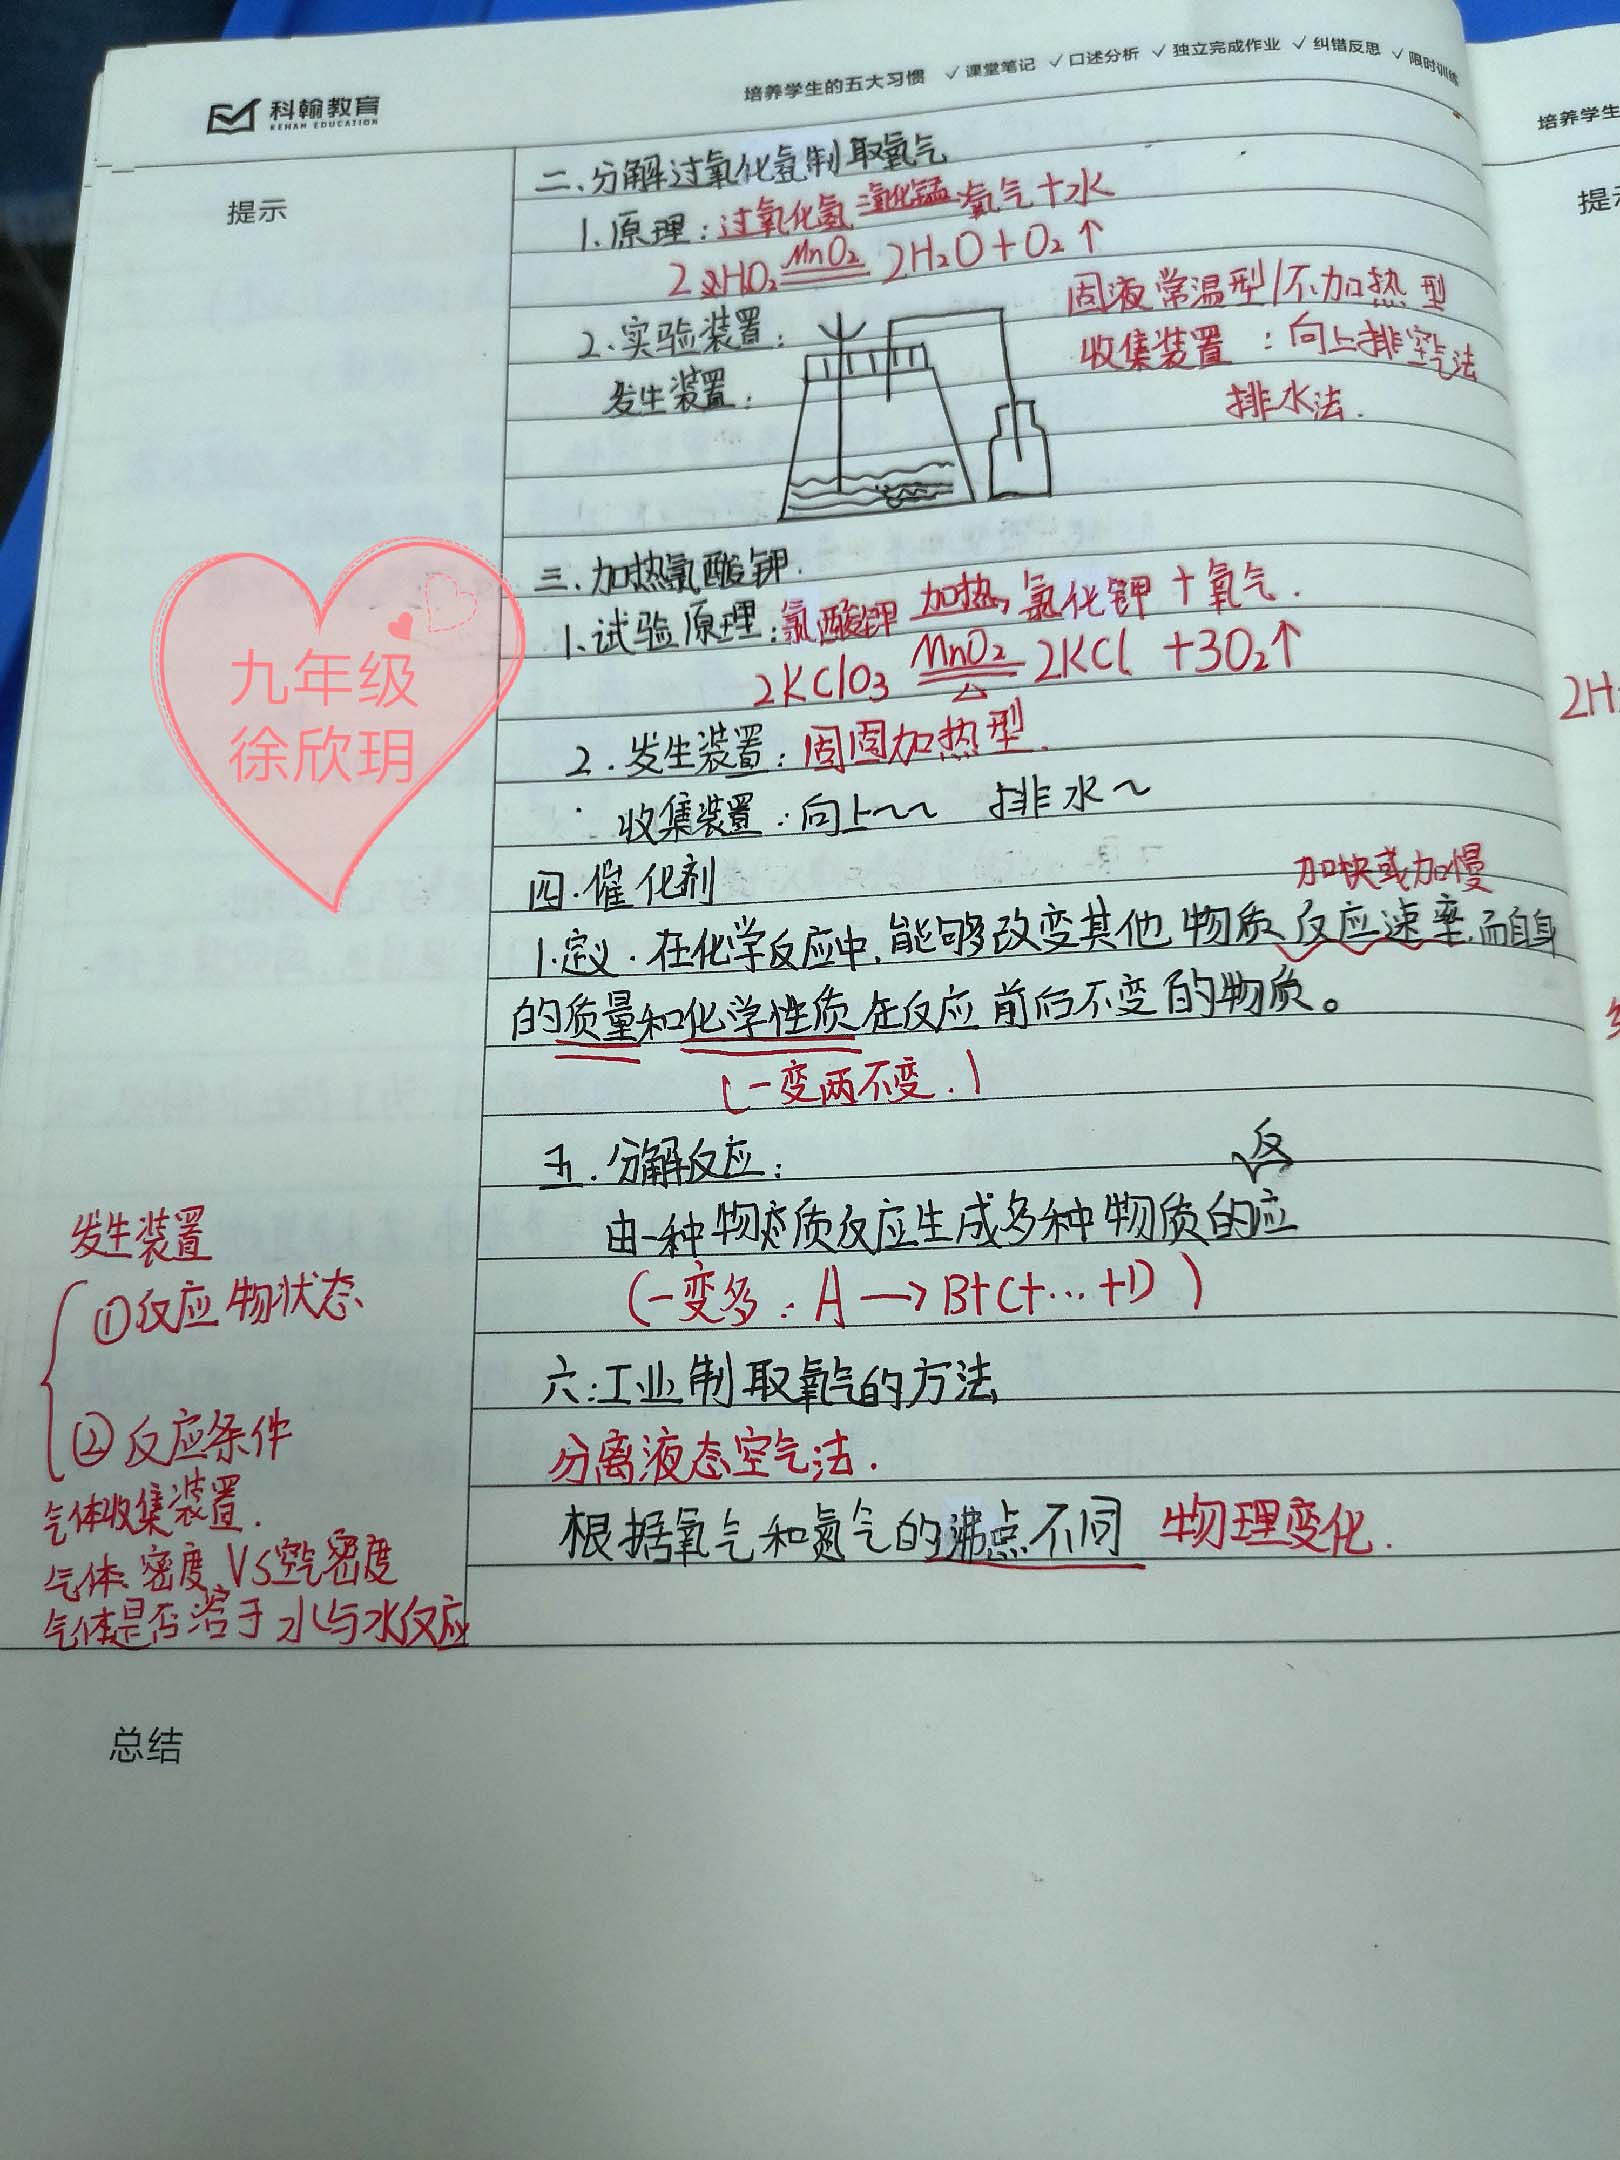 科翰教育
KEHAN EDUCATION
培养学生的五大习惯 ✓课堂笔记 ✓口述分析 ✓独立完成作业 ✓纠错反思 ✓限时训练
培养学生
提示
提
二、分解过氧化氢制取氧气
1、原理:过氧化氢 二氧化锰 氧气+水
MnO₂
2 HO₂ 2H₂O+O₂↑
固液常温型/不加热型
2、实验装置:
收集装置:向上排空气法
发生装置:
排水法.
三、加热氯酸钾.
1、试验原理:氯酸钾 加热 氯化钾+氧气.
2KClO₃ MnO₂ △ 2KCl +3O₂↑
2H
九年级
徐欣玥
2.发生装置:固固加热型.
收集装置:向上~~ 排水~
四.催化剂
加快或加慢
1.定义.在化学反应中,能够改变其他物质反应速率,而自身
的质量和化学性质在反应前后不变的物质。
(一变两不变.)
五.分解反应:
反
由一种物质反应生成多种物质的应
(一变多:A→B+C+…+D)
六:工业制取氧气的方法
分离液态空气法.
根据氧气和氮气的沸点不同 物理变化.
发生装置
①反应物状态
②反应条件
气体收集装置.
气体密度VS空气密度
气体是否溶于水与水反应
总结